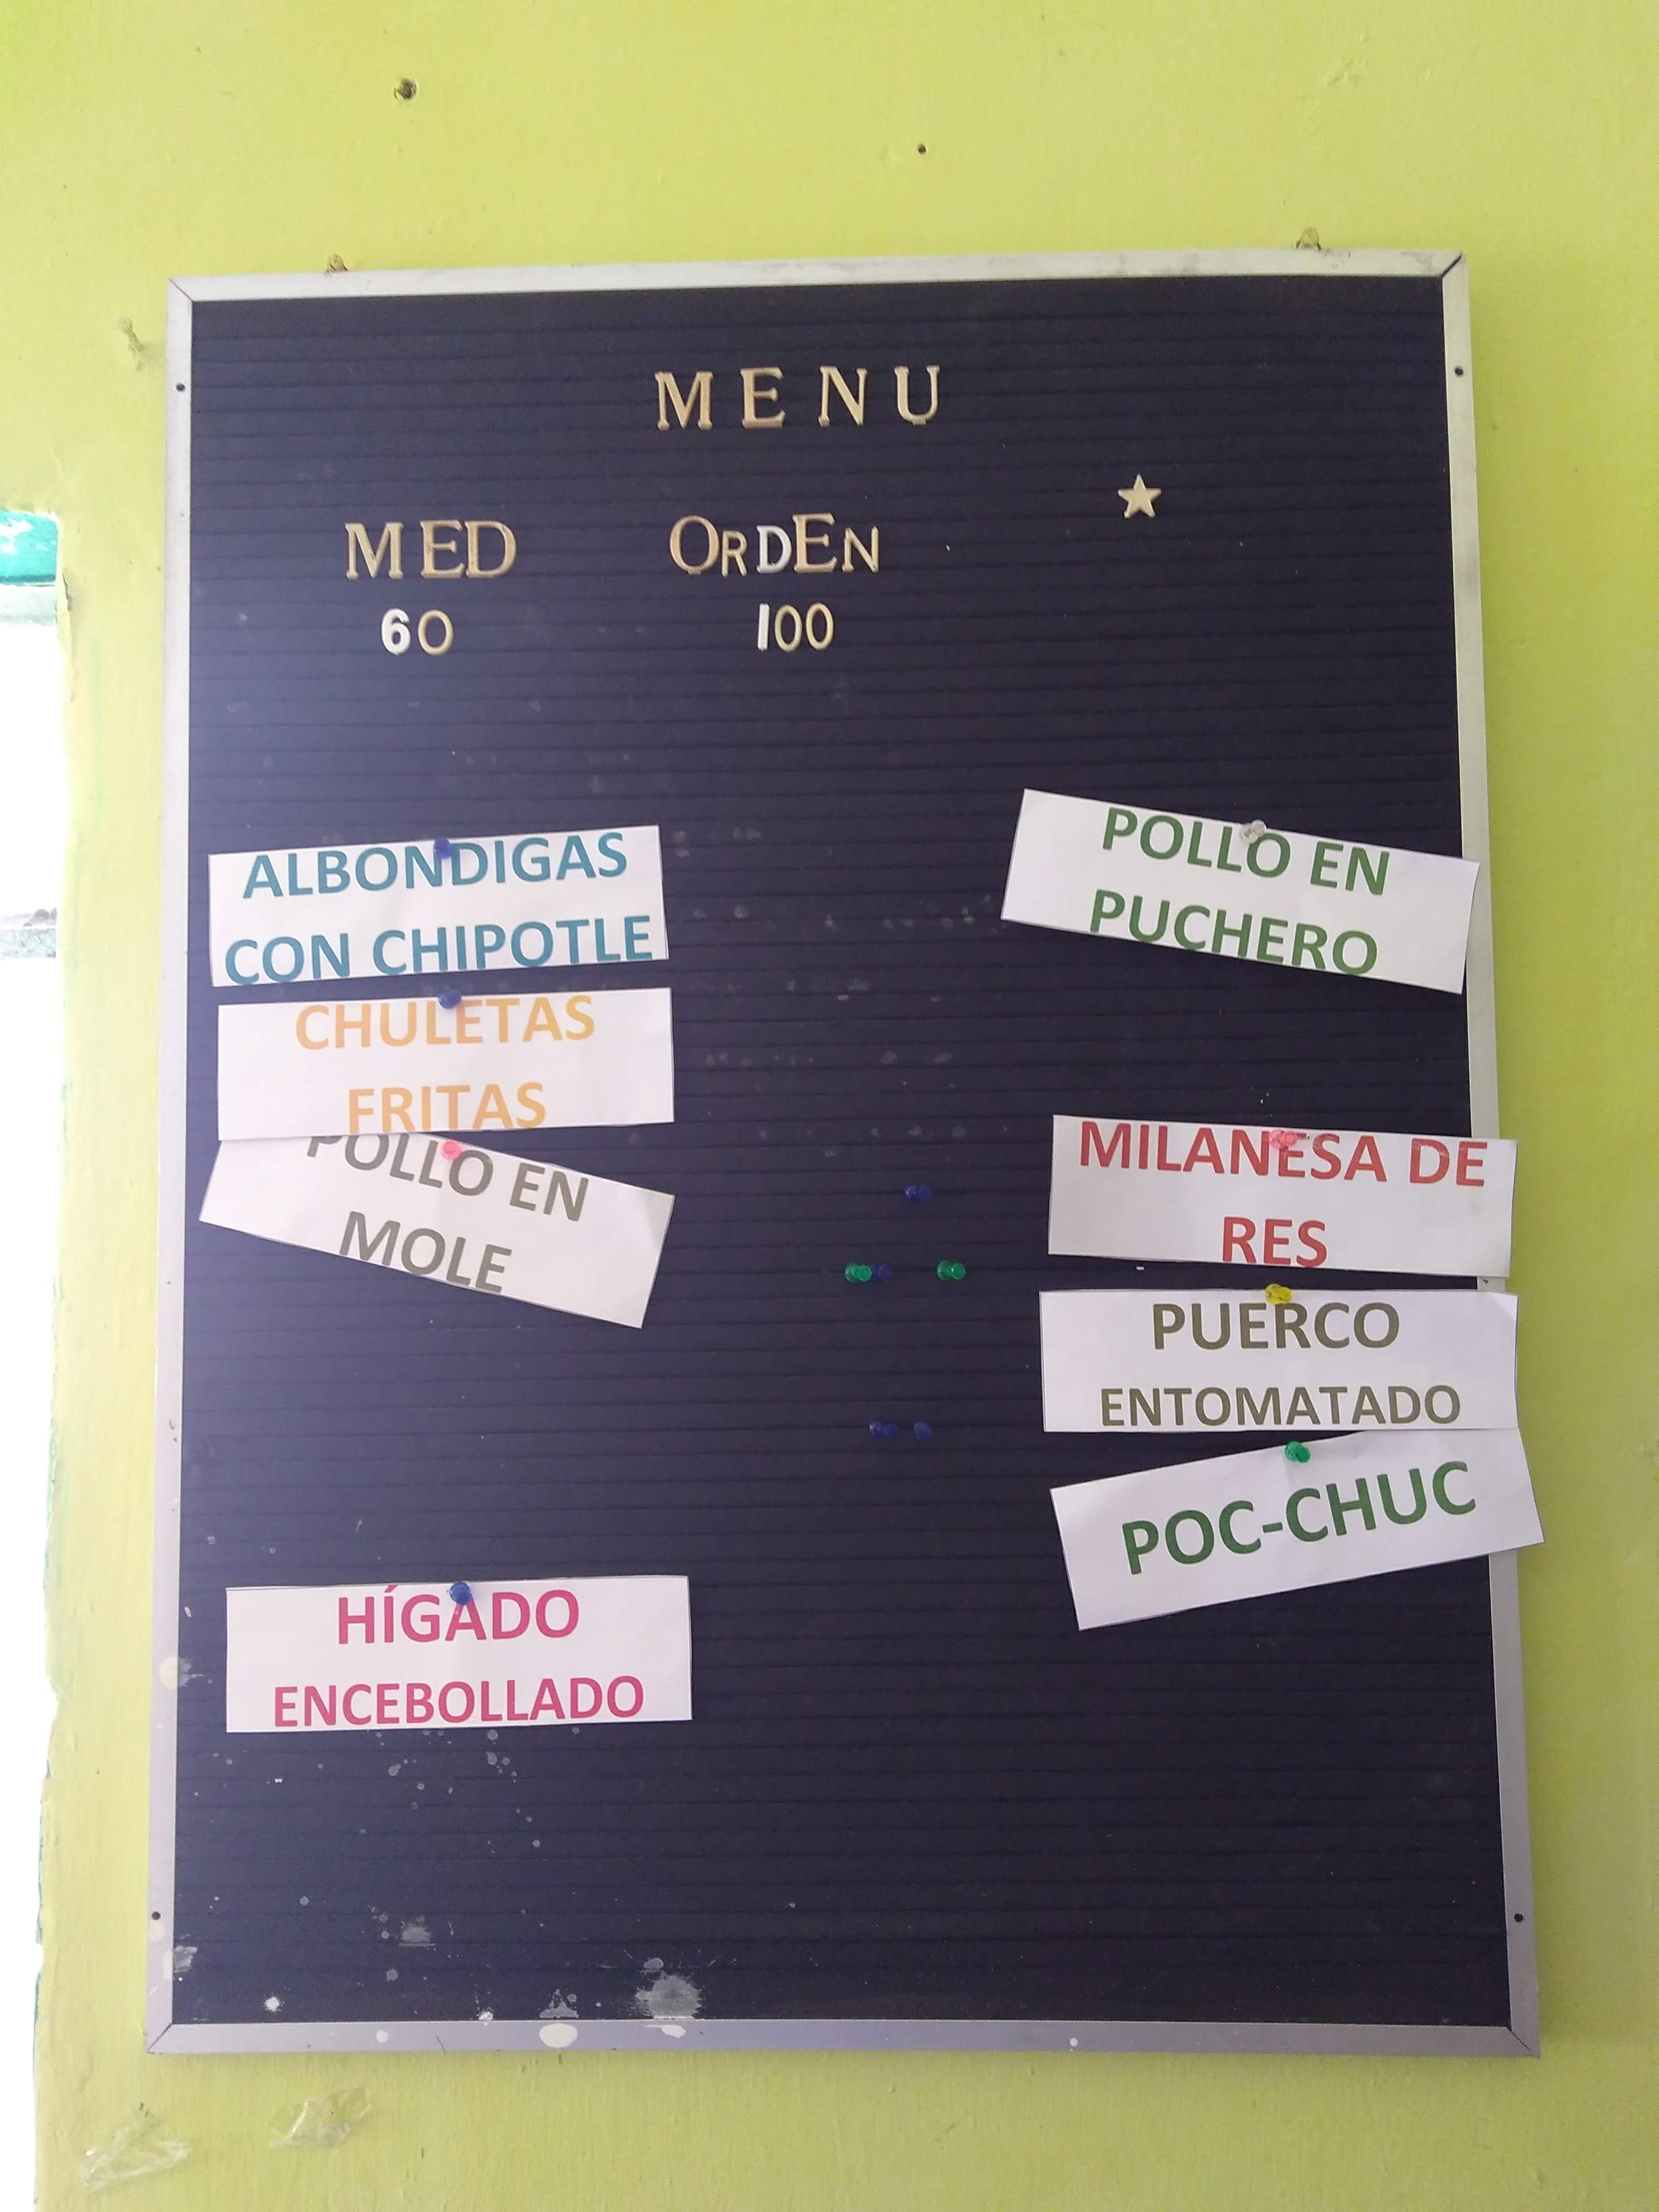 MENU
MED OrDEN
60 100
ALBONDIGAS
CON CHIPOTLE
CHULETAS
FRITAS
POLLO EN
MOLE
HÍGADO
ENCEBOLLADO
POLLO EN
PUCHERO
MILANESA DE
RES
PUERCO
ENTOMATADO
POC-CHUC